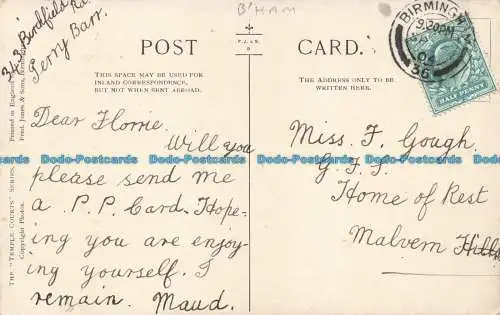 B'HAM
343 Birdfield Rd.
Perry Barr.
POST CARD.
P. J. & S.
BIRMINGHAM
9.20PM
04
36
HALF PENNY
THIS SPACE MAY BE USED FOR
INLAND CORRESPONDENCE,
BUT NOT WHEN SENT ABROAD.
THE ADDRESS ONLY TO BE
WRITTEN HERE.
Dear Florrie.
Will you
please send me
a P.P. Card. Hope-
ing you are enjoy-
ing yourself. I
remain. Maud.
Miss. F. Gough.
G. F. S.
Home of Rest
Malvern Hills
THE "TEMPLE COURTS" SERIES.
Copyright Photos.
Printed in England
Pred. Jones & Sons, Birmingham
Dodo-Postcards Dodo-Postcards Dodo-Postcards Dodo-Postcards
Dodo-Postcards Dodo-Postcards Dodo-Postcards Dodo-Postcards